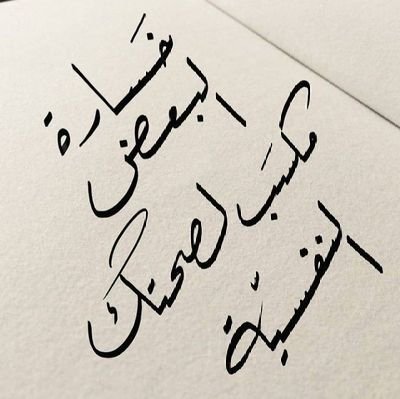 خسَارة
البعض
مكسَب لصحتك
النفسيّة